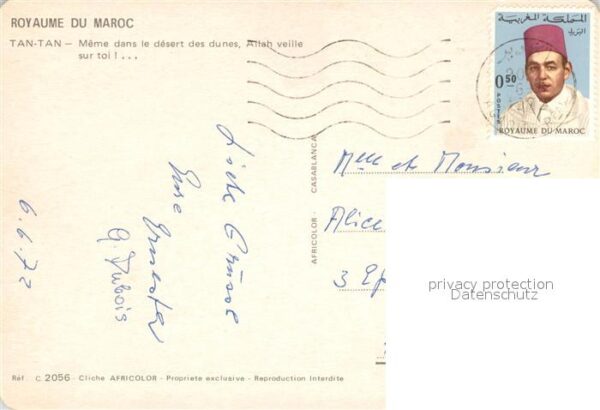 ROYAUME DU MAROC
TAN-TAN — Même dans le désert des dunes, Allah veille
sur toi ! ...
المملكة المغربية
البريد
0.50
POSTES
ROYAUME DU MAROC
6.6.72
Liebe Grüsse
Eure
G. Dubois
AFRICOLOR - CASABLANCA
Mme et Monsieur
Alice
3
privacy protection
Datenschutz
Réf. C. 2056 - Cliche AFRICOLOR - Propriete exclusive - Reproduction interdite